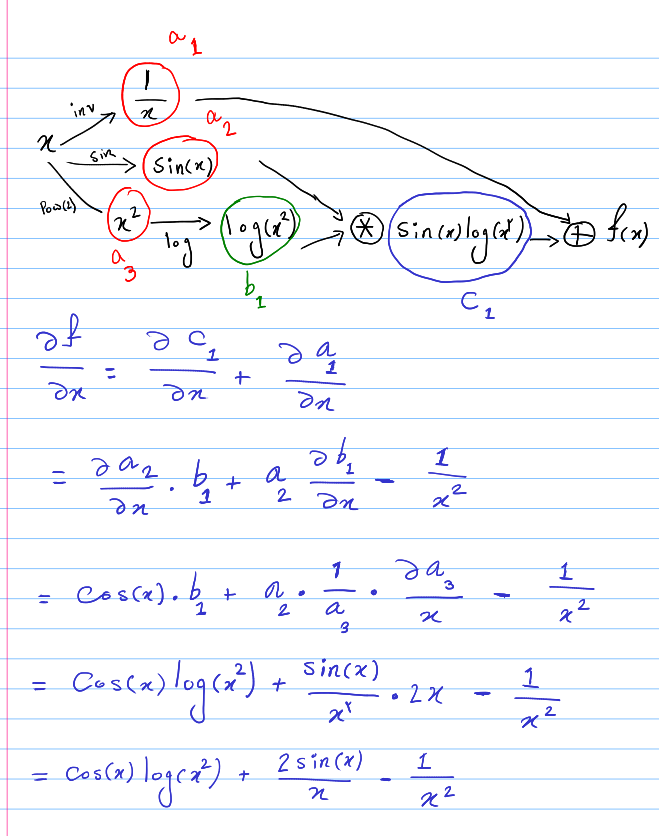 a₁
1/x
inv
a₂
x
sin
sin(x)
Pow(2)
x²
log
log(x²)
⊛
sin(x)log(x²)
⊕ f(x)
a₃
b₁
C₁
∂f/∂x = ∂C₁/∂x + ∂a₁/∂x
= ∂a₂/∂x · b₁ + a₂ ∂b₁/∂x − 1/x²
= Cos(x) · b₁ + a₂ · 1/a₃ · ∂a₃/x − 1/x²
= Cos(x) log(x²) + sin(x)/x² · 2x − 1/x²
= cos(x) log(x²) + 2sin(x)/x − 1/x²